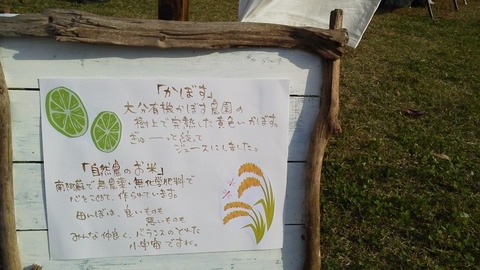 「かぼす」
大分有機かぼす農園の
樹上で完熟した黄色いかぼす。
ぎゅーっと絞って
ジュースにしました。
「自然農のお米」
南阿蘇で無農薬・無化学肥料で
心をこめて、作られています。
田んぼは、良いものも
悪いものも
みんな仲良く、バランスのとれた
小宇宙ですね。